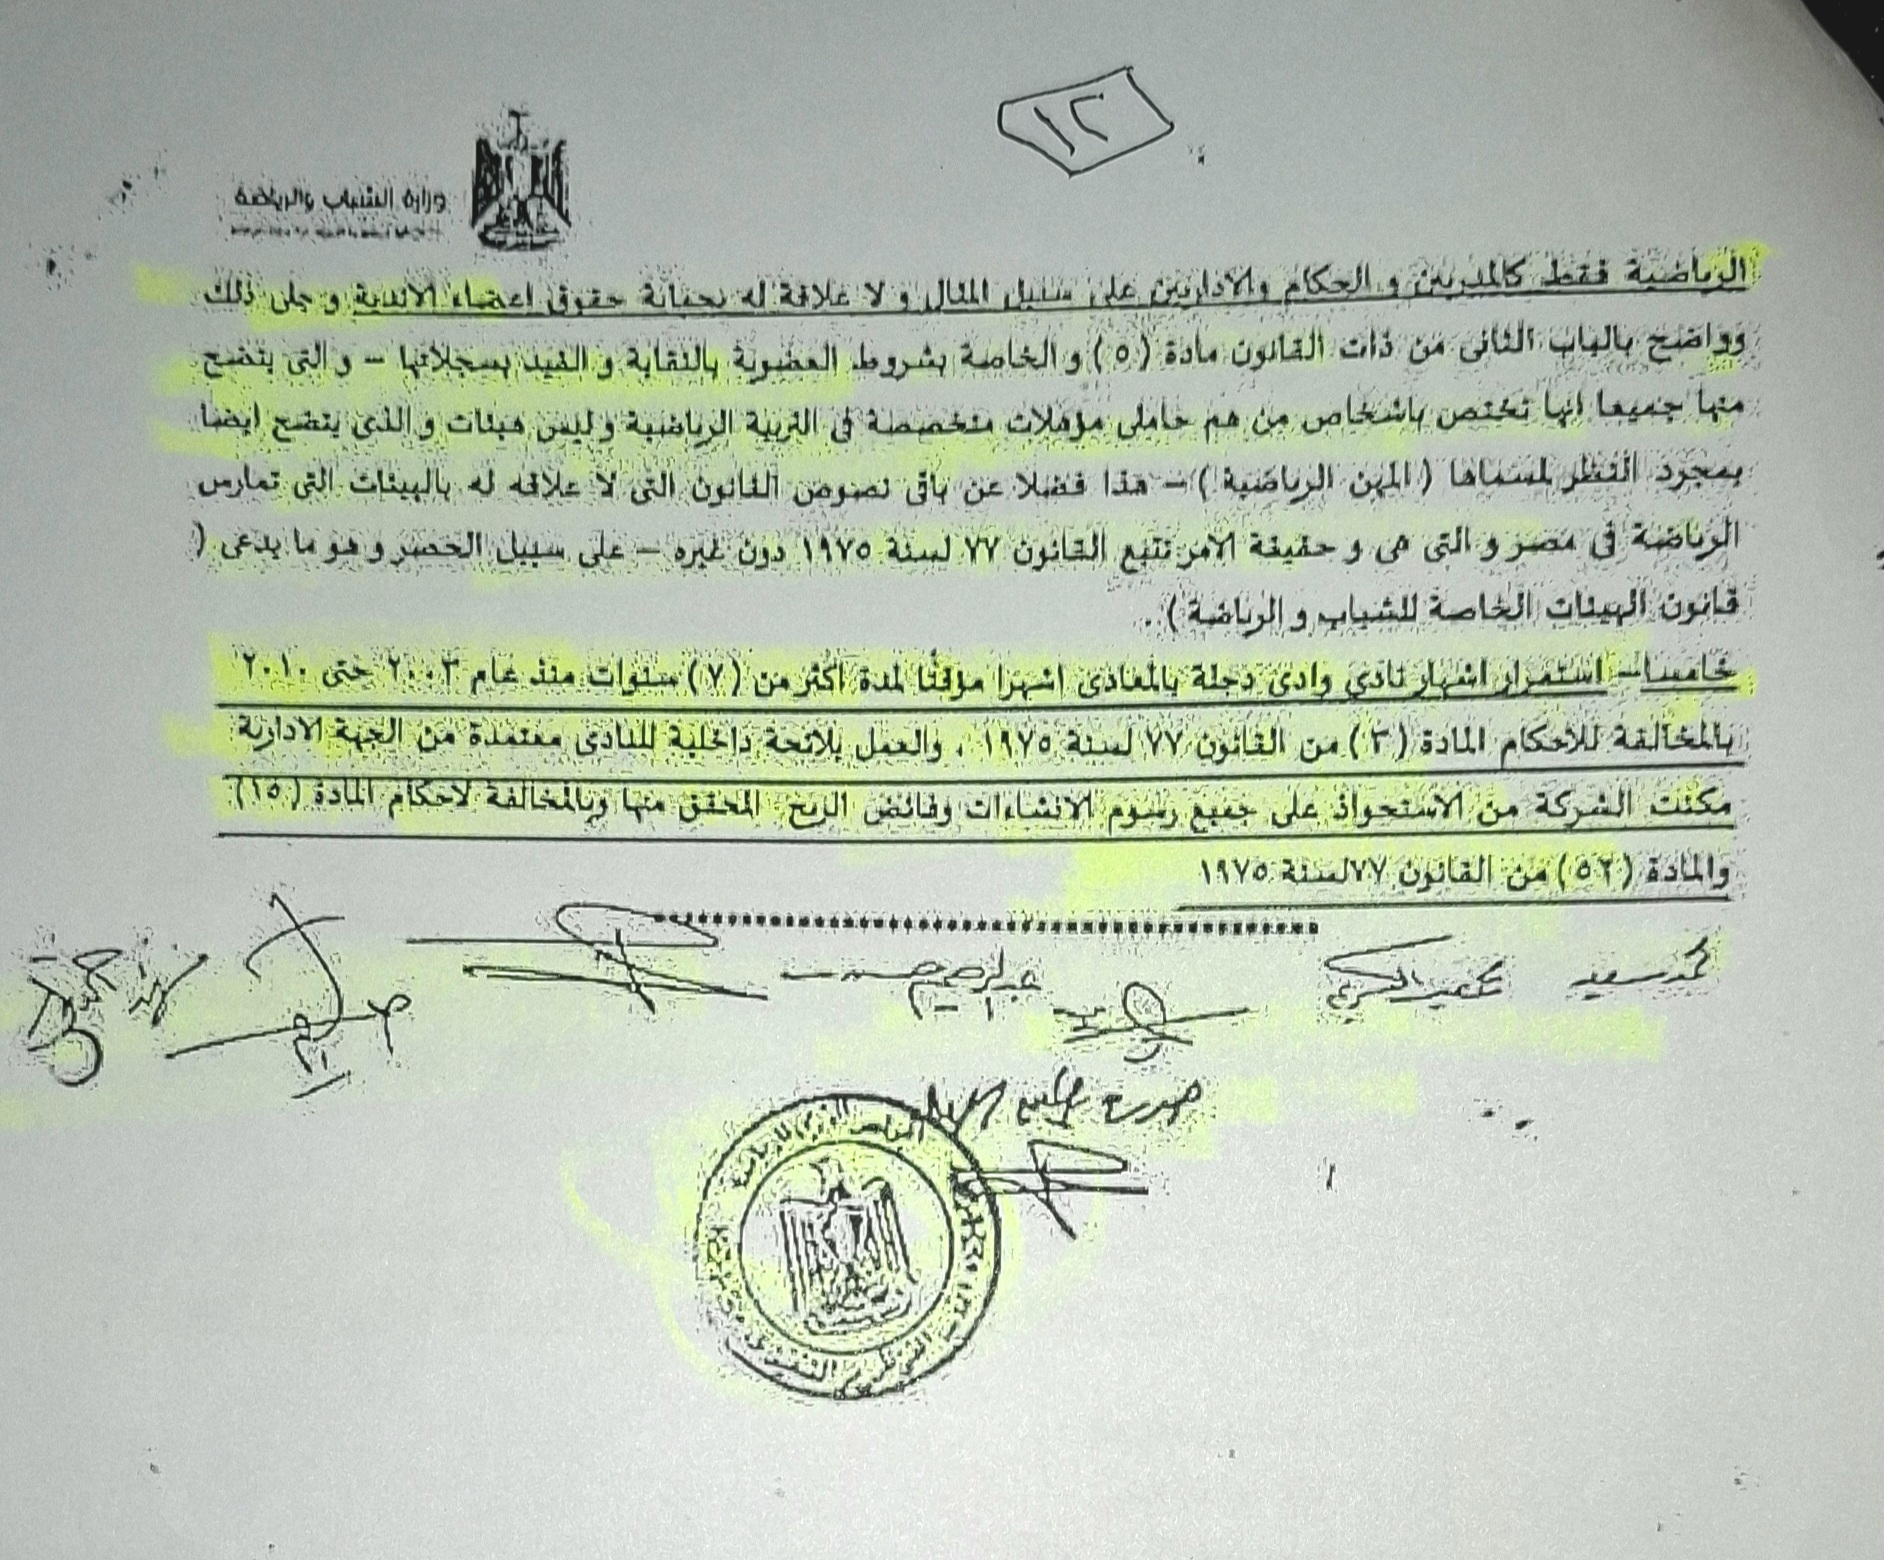 ١٢
وزارة الشباب والرياضة
الرياضية فقط كالمدربين و الحكام والاداريين على سبيل المثال و لا علاقة له بحماية حقوق اعضاء الاندية و جلى ذلك
وواضح بالباب الثانى من ذات القانون مادة (٥) و الخاصة بشروط العضوية بالنقابة و القيد بسجلاتها – و التى يتضح
منها جميعا انها تختص باشخاص من هم حاملى مؤهلات متخصصة فى التربية الرياضية و ليس هيئات و الذى يتضح ايضا
بمجرد النظر لمسماها ( المهن الرياضية ) – هذا فضلا عن باقى نصوص القانون التى لا علاقه له بالهيئات التى تمارس
الرياضة فى مصر و التى هى و حقيقة الامر تتبع القانون ٧٧ لسنة ١٩٧٥ دون غيره – على سبيل الحصر و هو ما يدعى (
قانون الهيئات الخاصة للشباب و الرياضة ) .
خامسا – استمرار اشهار نادي وادى دجلة بالمعادى اشهرا مؤقتًا لمدة اكثر من (٧) سنوات منذ عام ٢٠٠٣ حتى ٢٠١٠
بالمخالفة للأحكام المادة (٣) من القانون ٧٧ لسنة ١٩٧٥ ، والعمل بلائحة داخلية للنادى معتمدة من الجهة الادارية
مكنت الشركة من الاستحواذ على جميع رسوم الانشاءات وفائض الربح المحقق منها وبالمخالفة لاحكام المادة (١٥)
والمادة (٥٢) من القانون ٧٧لسنة ١٩٧٥
محمد سعيد
عبدالرحيم